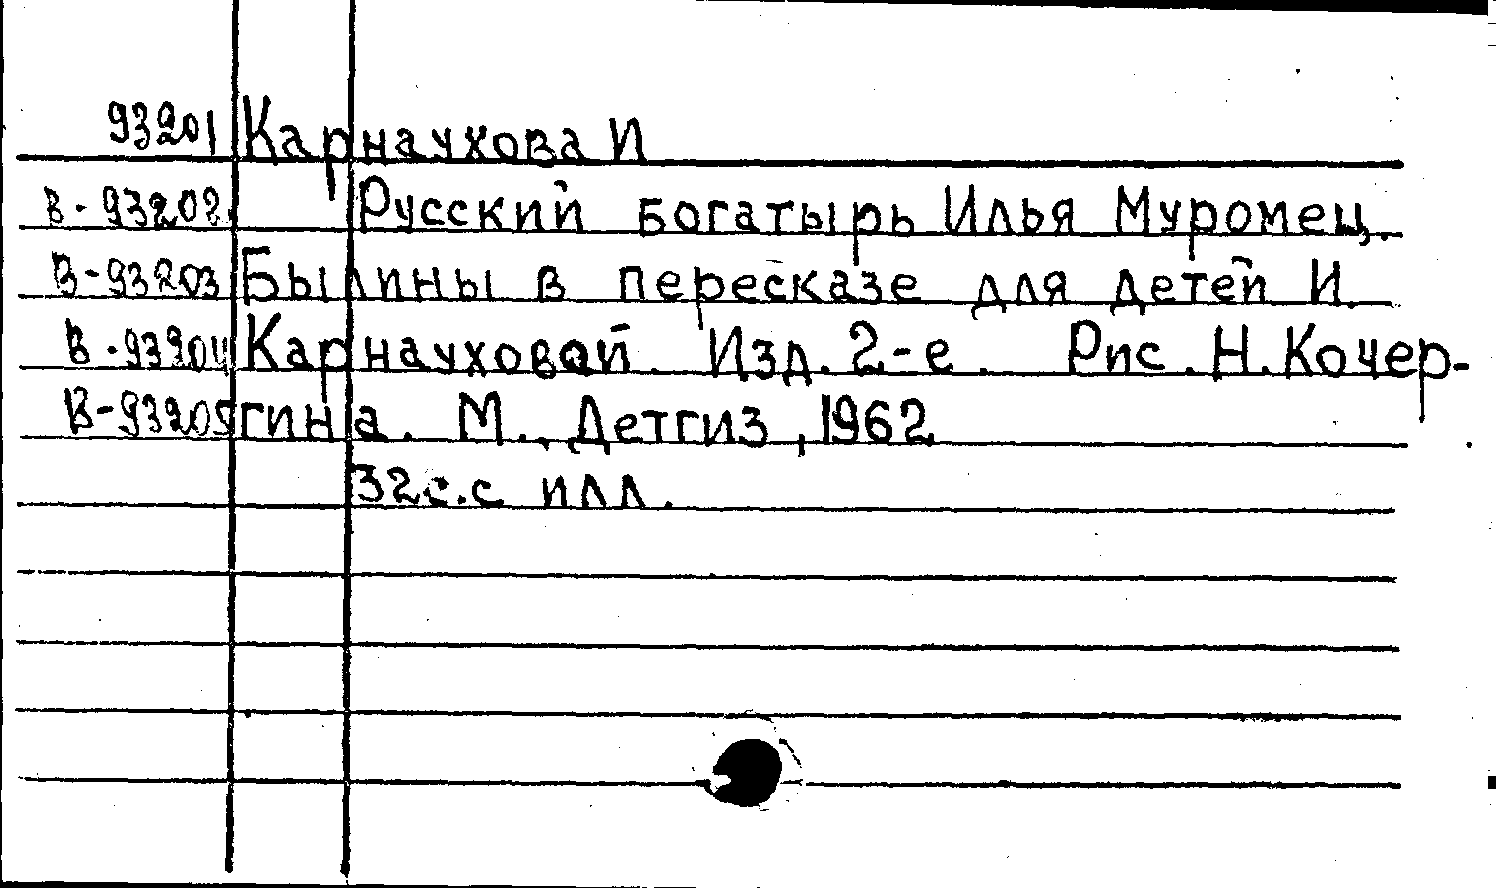 93201 Карнаухова И
В-93202. Русский богатырь Илья Муромец.
В-93203 Былины в пересказе для детей И.
В-93204 Карнауховой. Изд. 2-е. Рис. Н. Кочер-
В-93205 гина. М., Детгиз, 1962
32с.с илл.